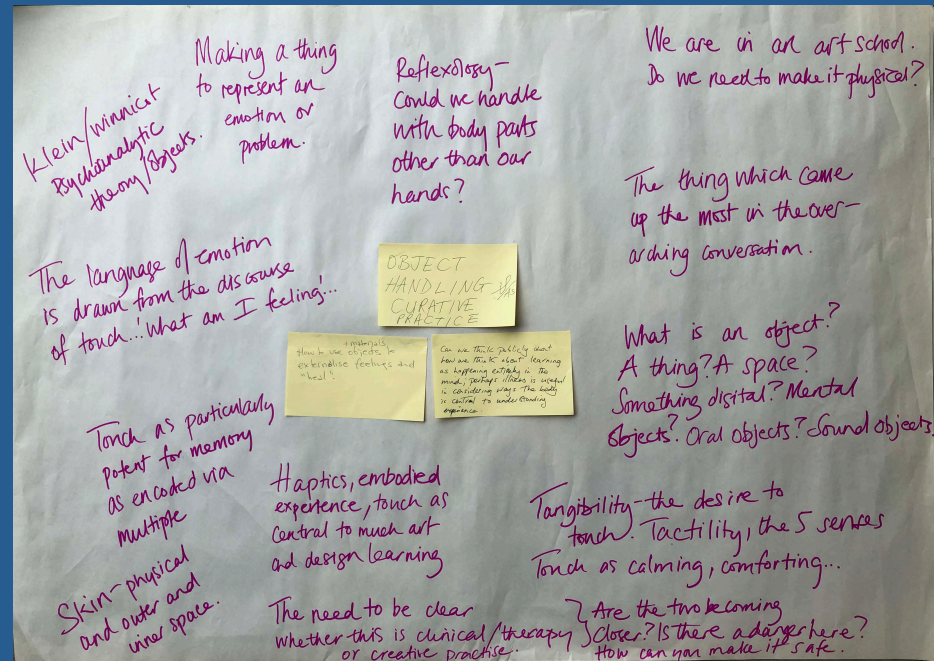 Klein/Winnicot
Psychoanalytic
theory/objects.
Making a thing
to represent an
emotion or
problem.
Reflexology-
Could we handle
with body parts
other than our
hands?
We are in an art school.
Do we need to make it physical?
The thing which came
up the most in the over-
arching conversation.
The language of emotion
is drawn from the discourse
of touch..'What am I feeling'...
OBJECT
HANDLING
CURATIVE
PRACTICE
+ materials
How to use objects to
externalise feelings and
heal?
Can we think publicly about
how we think about learning
as happening entirely in the
mind, perhaps illness is useful
in considering ways the body
is central to understanding
experience.
What is an object?
A thing? A space?
Something digital? Mental
Objects? Oral objects? Sound objects
Touch as particularly
potent for memory
as encoded via
multiple
Haptics, embodied
experience, touch as
central to much art
and design learning
Tangibility-the desire to
touch. Tactility, the 5 senses
Touch as calming, comforting...
Skin-physical
and outer and
inner space.
The need to be clear
whether this is clinical/therapy
or creative practise.
Are the two becoming
closer? Is there a danger here?
How can you make it safe.